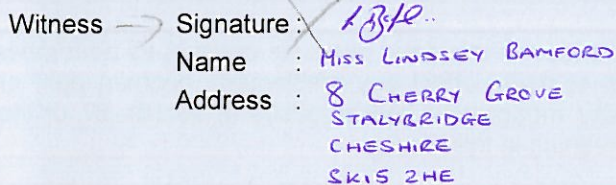 Witness → Signature :
Name : MISS LINDSEY BAMFORD
Address : 8 CHERRY GROVE
STALYBRIDGE
CHESHIRE
SK15 2HE